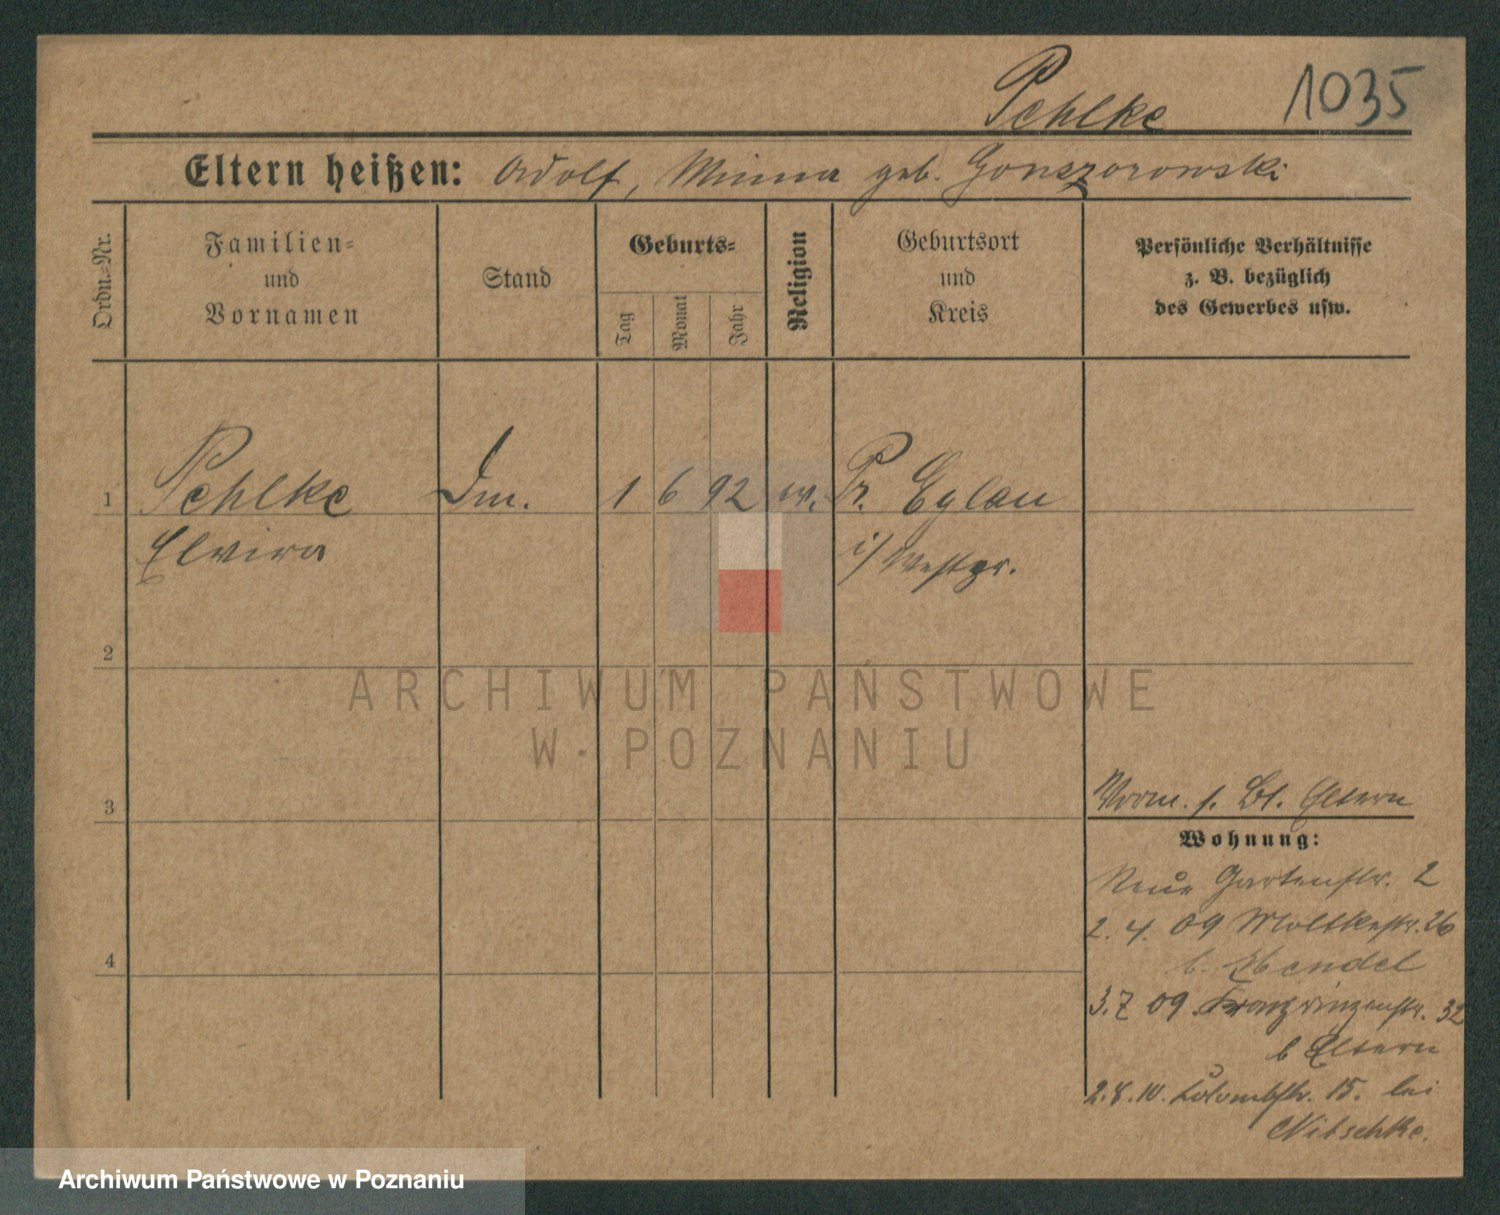 Pehlke 1035
Eltern heißen: Adolf, Minna geb. Gonszorowski
Ordn.-Nr.
Familien-
und
Vornamen
Stand
Geburts-
Tag
Monat
Jahr
Religion
Geburtsort
und
Kreis
Persönliche Verhältnisse
z. B. bezüglich
des Gewerbes usw.
1 Pehlke 1 6 92 Pr. Eylau
Elvira i/ Westpr.
2
ARCHIWUM PAŃSTWOWE
W POZNANIU
3
Vorm. s. Bl. Eltern
Wohnung:
Neue Gartenstr. 2
2. 4. 09 Moltkestr. 26
b. Hendel
3. 7 09 Kronprinzenstr. 32
b Eltern
4
2. 8. 10. Kolombstr. 15. bei
Nitschke.
Archiwum Państwowe w Poznaniu